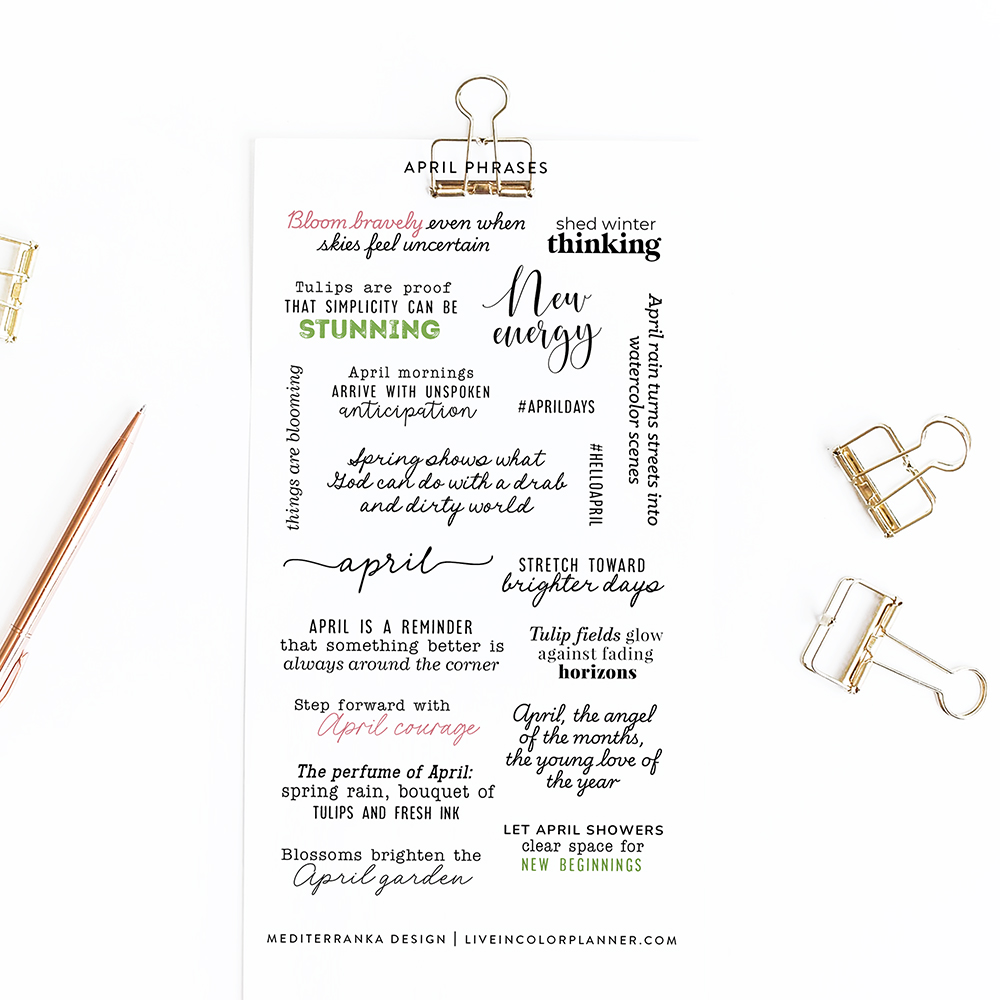 APRIL PHRASES
Bloom bravely even when
skies feel uncertain
shed winter
thinking
Tulips are proof
THAT SIMPLICITY CAN BE
STUNNING
New
energy
April rain turns streets into
watercolor scenes
things are blooming
April mornings
ARRIVE WITH UNSPOKEN
anticipation
#APRILDAYS
#HELLOAPRIL
Spring shows what
God can do with a drab
and dirty world
april
STRETCH TOWARD
brighter days
APRIL IS A REMINDER
that something better is
always around the corner
Tulip fields glow
against fading
horizons
Step forward with
April courage
April, the angel
of the months,
the young love of
the year
The perfume of April:
spring rain, bouquet of
TULIPS AND FRESH INK
LET APRIL SHOWERS
clear space for
NEW BEGINNINGS
Blossoms brighten the
April garden
MEDITERRANKA DESIGN | LIVEINCOLORPLANNER.COM